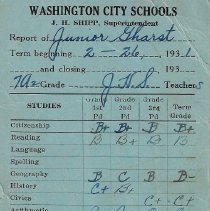 WASHINGTON CITY SCHOOLS
J. H. SHIPP, Superintendent
Report of Junior Gharst
Term beginning 2-26, 1931
and closing 193
7A2 Grade J.H.S. Teachers
STUDIES Grade 1st Pd Grade 2nd Pd Grade 3rd Pd Term Grade
Citizenship B+ B+ B B+
Reading B B B B
Language
Spelling
Geography B C B B-
History C+ B+
Civics C+ C+
Arithmetic